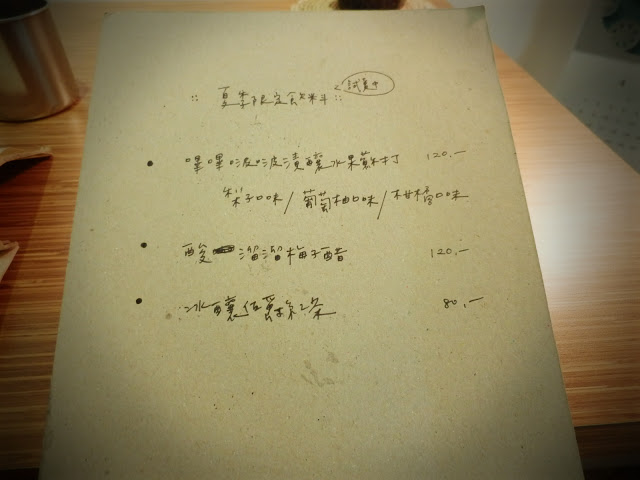 試賣中
:: 夏季限定飲料 ::
• 嗶嗶啵啵漬釀水果蘇打 120.-
梨子口味/葡萄柚口味/柑橘口味
• 酸溜溜梅子醋 120.-
• 冰釀佰 80.-